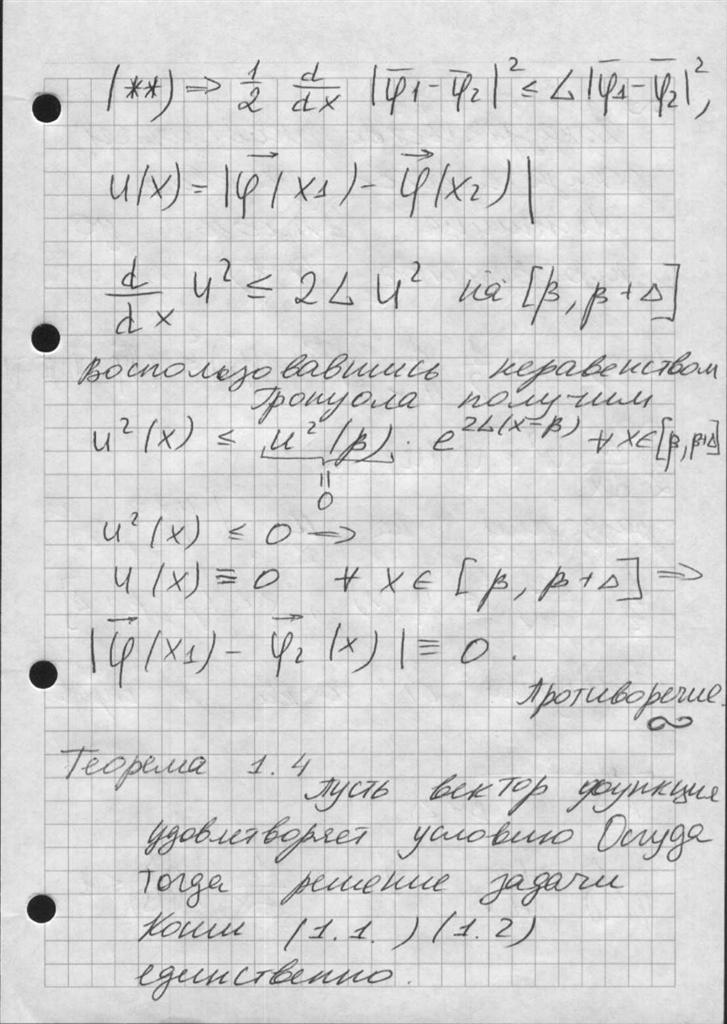 (**) ⇒ 1/2 d/dx |φ̄1 - φ̄2|² ≤ L|φ̄1 - φ̄2|²,
u(x) = |φ⃗(x1) - φ⃗(x2)|
d/dx u² ≤ 2L u² на [β, β+Δ]
Воспользовавшись неравенством
Гронуола получим
u²(x) ≤ u²(β) · e^{2L(x-β)} ∀ x∈[β, β+Δ]
=
0
u²(x) ≤ 0 ⇒
u(x) ≡ 0 ∀ x ∈ [β, β+Δ] ⇒
|φ⃗(x1) - φ⃗2(x)| ≡ 0.
Противоречие.
∞
Теорема 1.4
Пусть вектор функция
удовлетворяет условию Осгуда
Тогда решение задачи
Коши (1.1.) (1.2)
единственно.